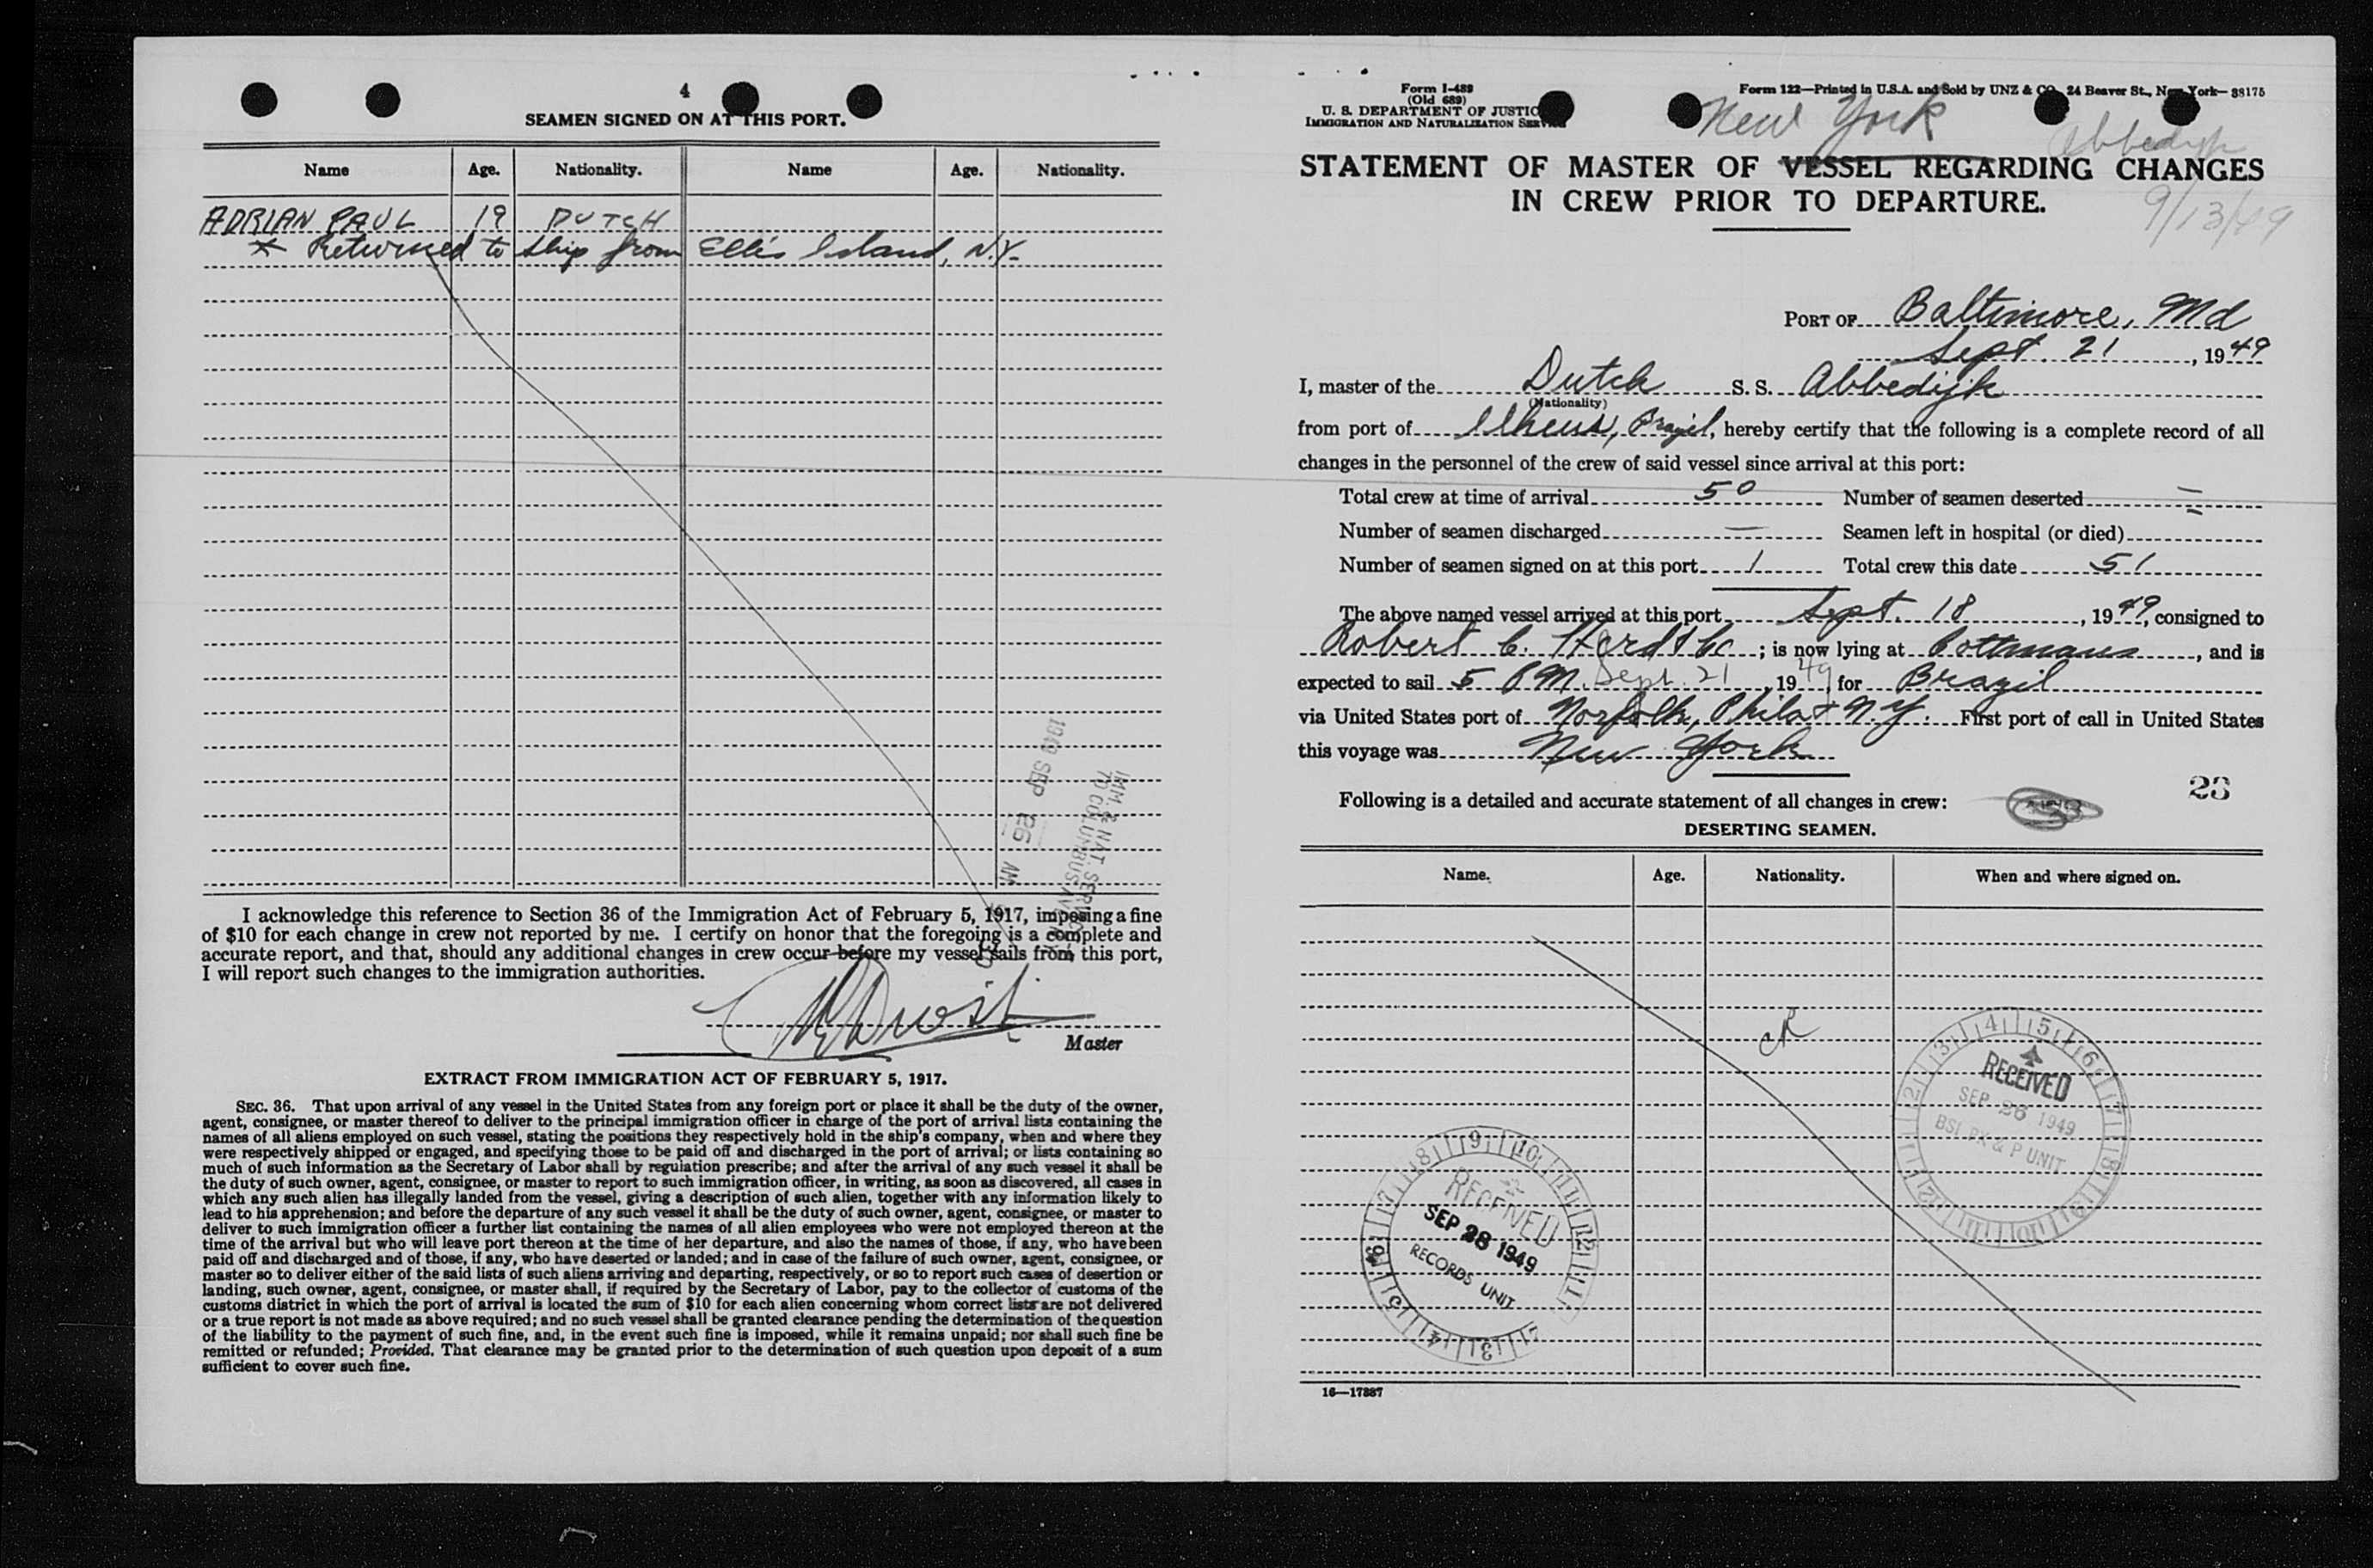 4
SEAMEN SIGNED ON AT THIS PORT.
Name Age. Nationality. Name Age. Nationality.
ADRIAN PAUL 19 DUTCH
* Returned to ship from Ellis Island, N.Y.
1949 SEP 26 AM
IMM. & NAT. SERVICE
70 COLUMBUS AVE
I acknowledge this reference to Section 36 of the Immigration Act of February 5, 1917, imposing a fine
of $10 for each change in crew not reported by me. I certify on honor that the foregoing is a complete and
accurate report, and that, should any additional changes in crew occur before my vessel sails from this port,
I will report such changes to the immigration authorities.
Master
EXTRACT FROM IMMIGRATION ACT OF FEBRUARY 5, 1917.
SEC. 36. That upon arrival of any vessel in the United States from any foreign port or place it shall be the duty of the owner,
agent, consignee, or master thereof to deliver to the principal immigration officer in charge of the port of arrival lists containing the
names of all aliens employed on such vessel, stating the positions they respectively hold in the ship's company, when and where they
were respectively shipped or engaged, and specifying those to be paid off and discharged in the port of arrival; or lists containing so
much of such information as the Secretary of Labor shall by regulation prescribe; and after the arrival of any such vessel it shall be
the duty of such owner, agent, consignee, or master to report to such immigration officer, in writing, as soon as discovered, all cases in
which any such alien has illegally landed from the vessel, giving a description of such alien, together with any information likely to
lead to his apprehension; and before the departure of any such vessel it shall be the duty of such owner, agent, consignee, or master to
deliver to such immigration officer a further list containing the names of all alien employees who were not employed thereon at the
time of the arrival but who will leave port thereon at the time of her departure, and also the names of those, if any, who have been
paid off and discharged and of those, if any, who have deserted or landed; and in case of the failure of such owner, agent, consignee, or
master so to deliver either of the said lists of such aliens arriving and departing, respectively, or so to report such cases of desertion or
landing, such owner, agent, consignee, or master shall, if required by the Secretary of Labor, pay to the collector of customs of the
customs district in which the port of arrival is located the sum of $10 for each alien concerning whom correct lists are not delivered
or a true report is not made as above required; and no such vessel shall be granted clearance pending the determination of the question
of the liability to the payment of such fine, and, in the event such fine is imposed, while it remains unpaid; nor shall such fine be
remitted or refunded; Provided, That clearance may be granted prior to the determination of such question upon deposit of a sum
sufficient to cover such fine.
Form I-489
(Old 689)
U. S. DEPARTMENT OF JUSTICE
IMMIGRATION AND NATURALIZATION SERVICE
Form 122—Printed in U.S.A. and Sold by UNZ & CO. 24 Beaver St., New York—38175
New York
Abbedijk
9/13/49
STATEMENT OF MASTER OF VESSEL REGARDING CHANGES
IN CREW PRIOR TO DEPARTURE.
PORT OF Baltimore, Md
Sept. 21, 1949
I, master of the Dutch S. S. Abbedijk
(Nationality)
from port of Ilheus, Brazil, hereby certify that the following is a complete record of all
changes in the personnel of the crew of said vessel since arrival at this port:
Total crew at time of arrival 50 Number of seamen deserted —
Number of seamen discharged — Seamen left in hospital (or died) —
Number of seamen signed on at this port 1 Total crew this date 51
The above named vessel arrived at this port Sept. 18, 1949, consigned to
Robert C. Herd & Co; is now lying at Cottmans, and is
expected to sail 5 PM. Sept. 21, 1949, for Brazil
via United States port of Norfolk, Phila & N.Y. First port of call in United States
this voyage was New York
23
Following is a detailed and accurate statement of all changes in crew:
DESERTING SEAMEN.
Name. Age. Nationality. When and where signed on.
RECEIVED
SEP 26 1949
BSI PX & P UNIT
RECEIVED
SEP 28 1949
RECORDS UNIT
16—17887